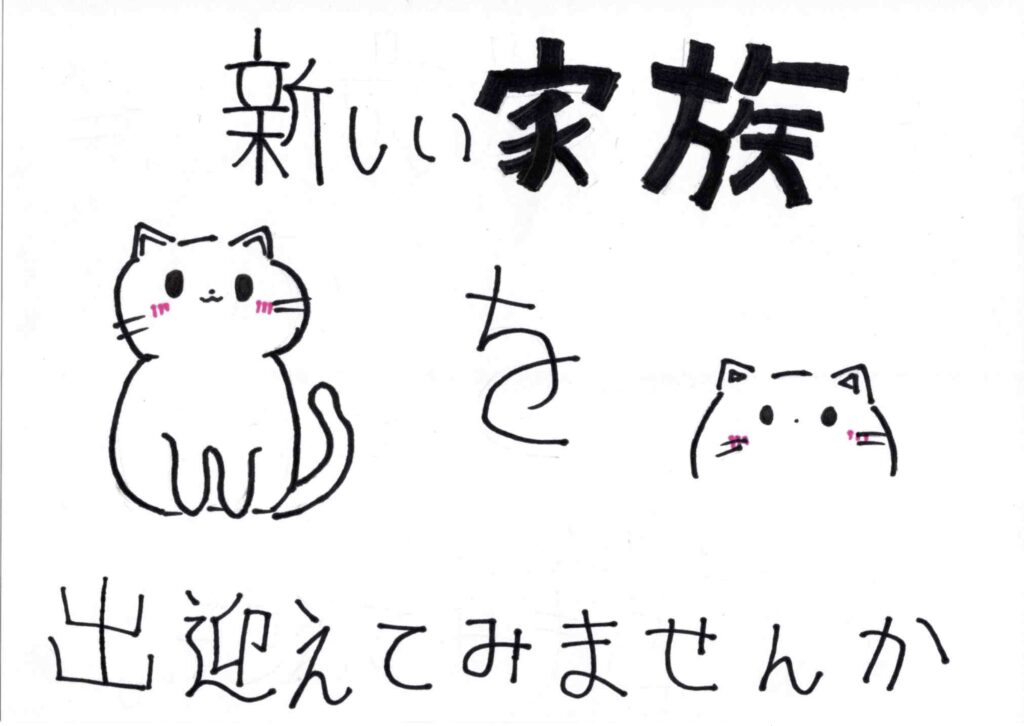 新しい家族
を
出迎えてみませんか